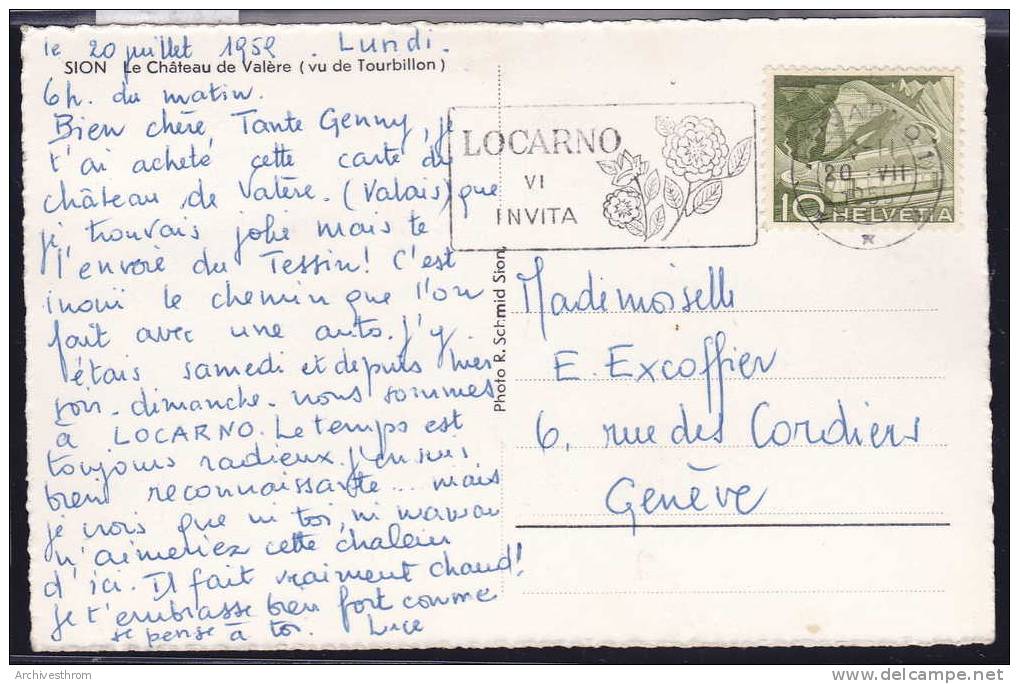 le 20 juillet 1959. Lundi.
SION Le Château de Valère (vu de Tourbillon)
6h. du matin.
Bien chère, Tante Genny, je
t'ai acheté cette carte du
château de Valère. (Valais) que
je trouvais jolie mais te
l'envoie du Tessin! C'est
inouï le chemin que l'on
fait avec une auto. J'y
étais samedi et depuis hier
soir - dimanche - nous sommes
à LOCARNO. Le temps est
toujours radieux. J'en suis
bien reconnaissante... mais
je crois que ni toi, ni maman
n'aimeriez cette chaleur
d'ici. Il fait vraiment chaud!
Je t'embrasse bien fort comme
je pense à toi. Luce
Photo R. Schmid Sion.
LOCARNO
VI
INVITA
20 VII
10 HELVETIA
Mademoiselle
E. Excoffier
6, rue des Cordiers
Genève
Archivesthrom
delcampe.net